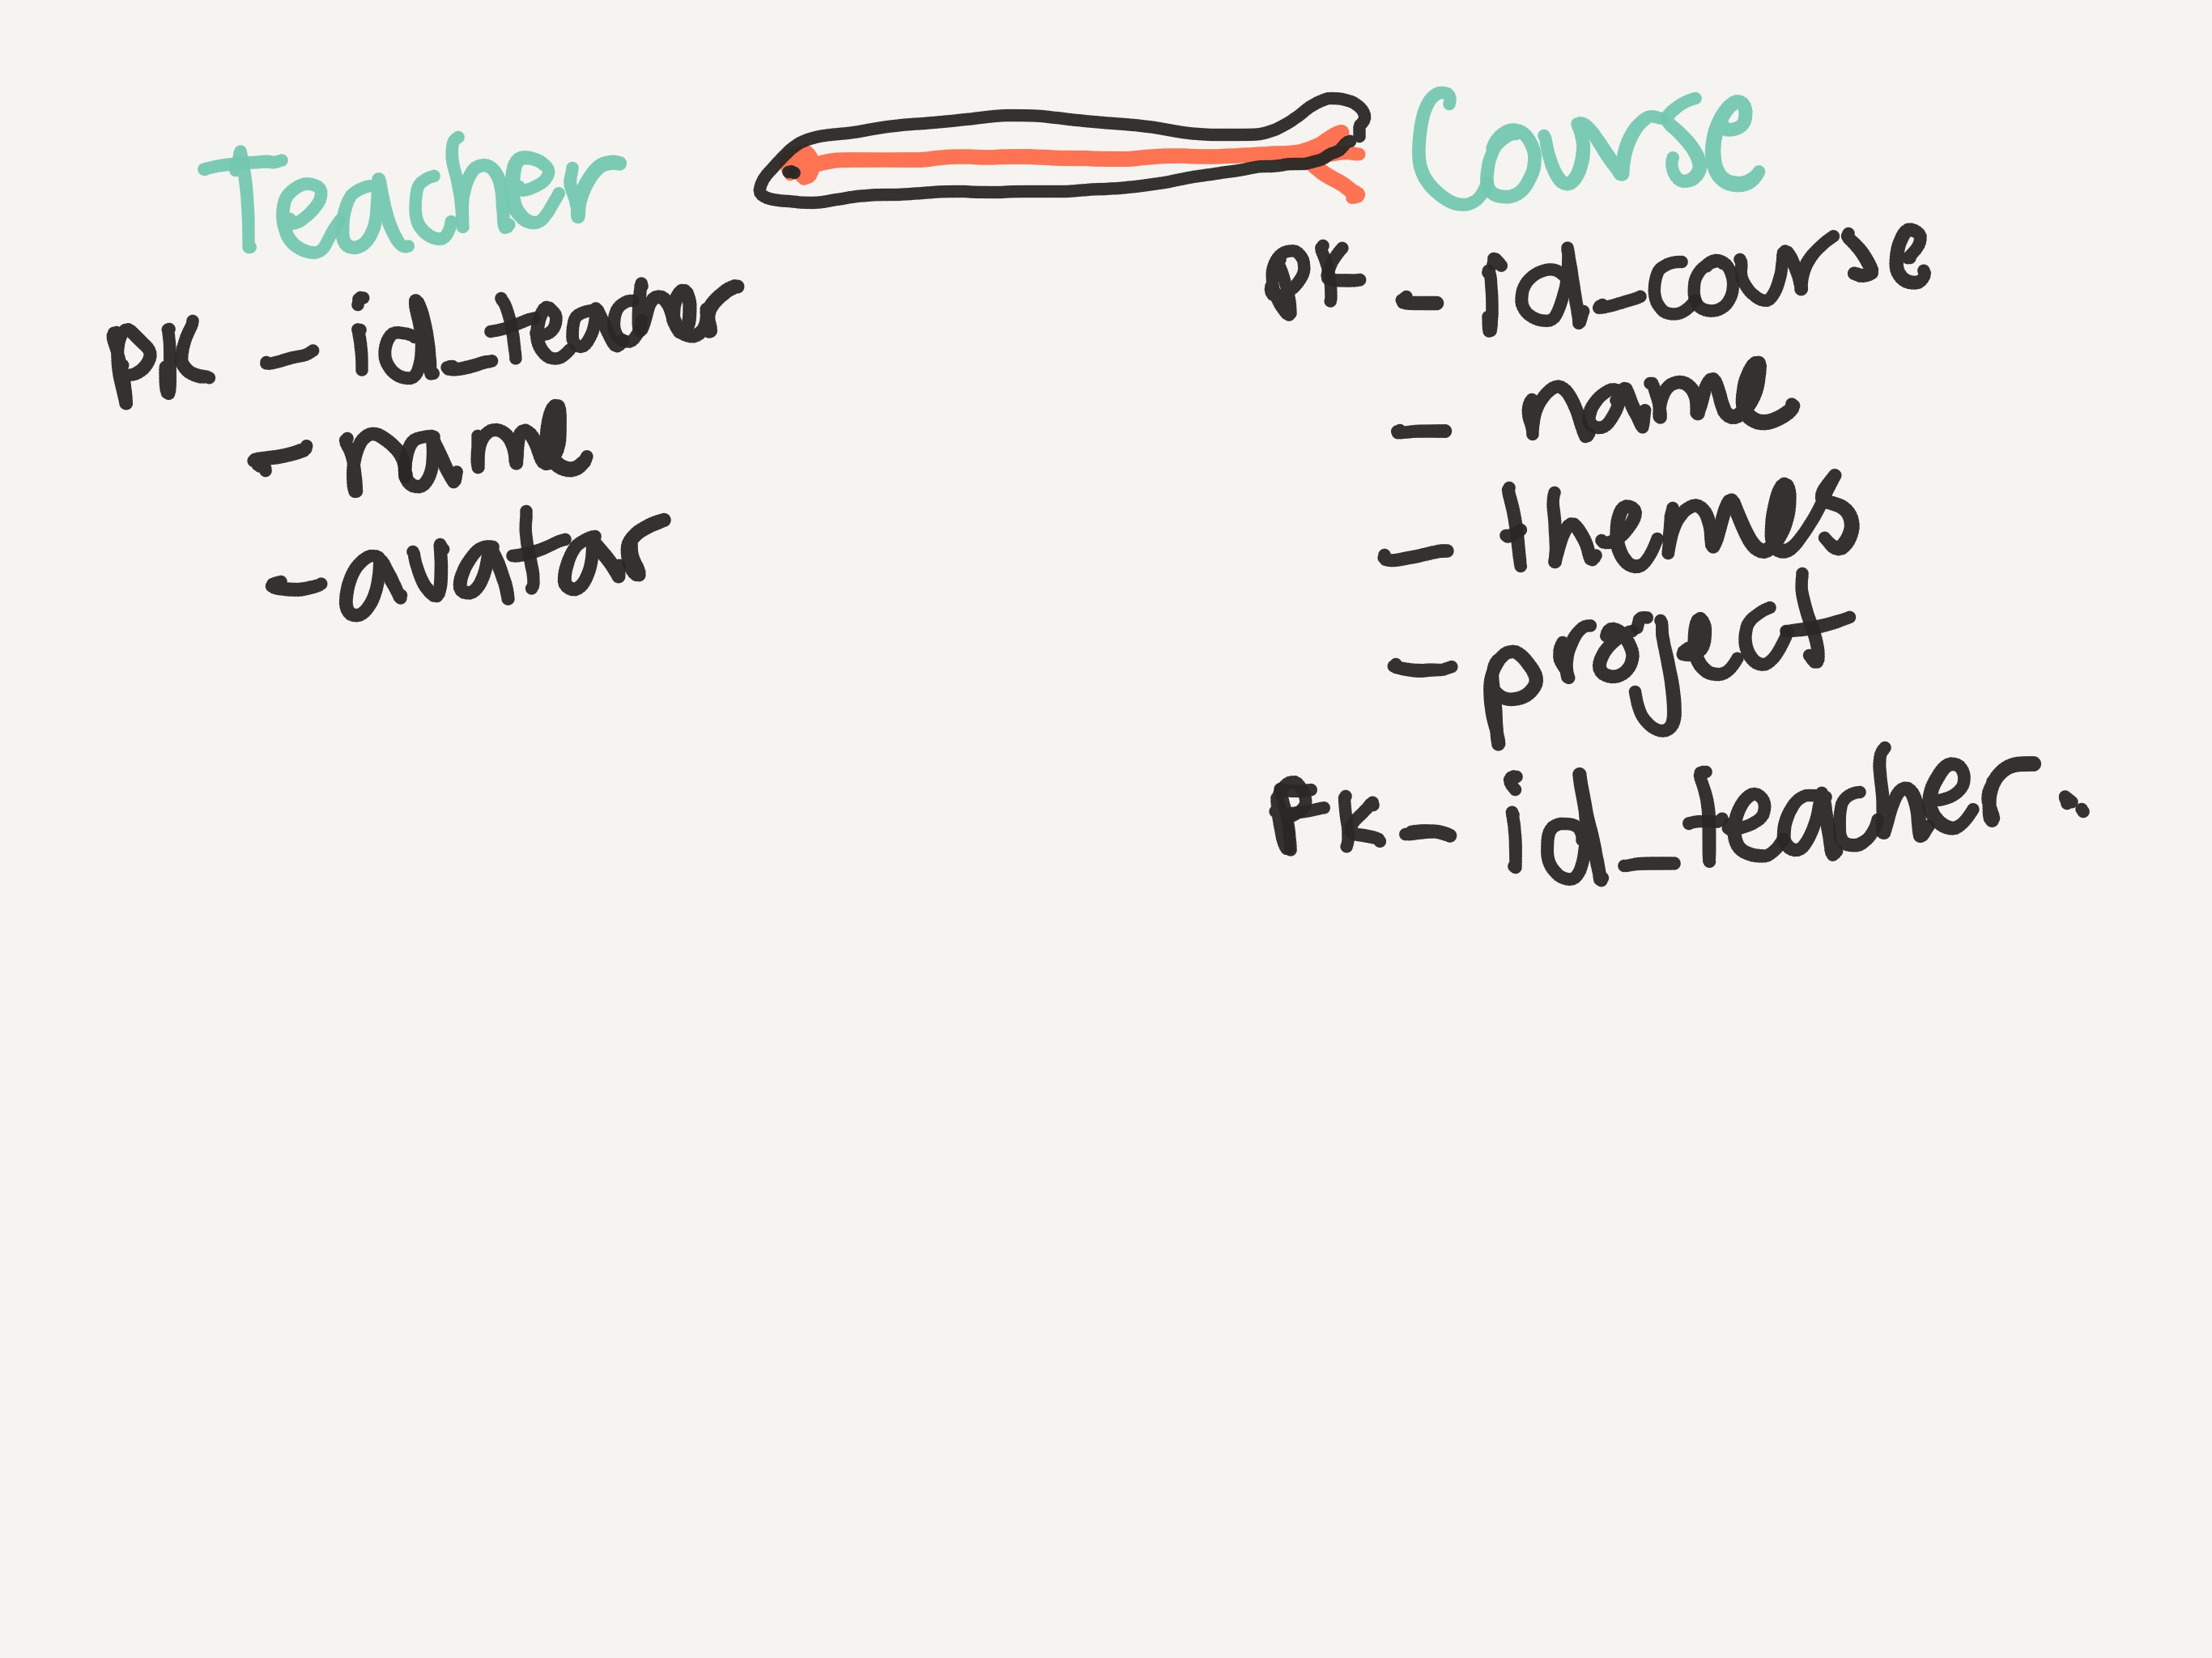 Teacher
pk - id_teacher
- name
- avatar
Course
pk - id_course
- name
- themes
- project
Fk - id_teacher.